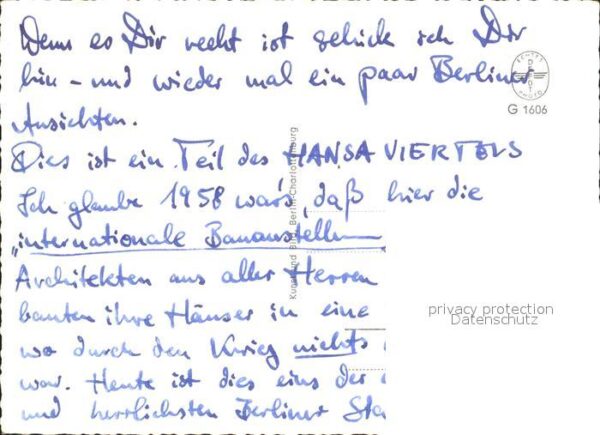 Wenn es Dir recht ist schick ich Dir
hin - und wieder mal ein paar Berliner
Ansichten.
Dies ist ein Teil des HANSA VIERTELS
Ich glaube 1958 war's, daß hier die
"internationale Bauausstellun
Architekten aus aller Herren
bauten ihre Häuser in eine
wo durch den Krieg nichts
war. Heute ist dies eins der
und herrlichsten Berliner Sta
G 1606
Kunst und Bild, Berlin-Charlottenburg
privacy protection
Datenschutz